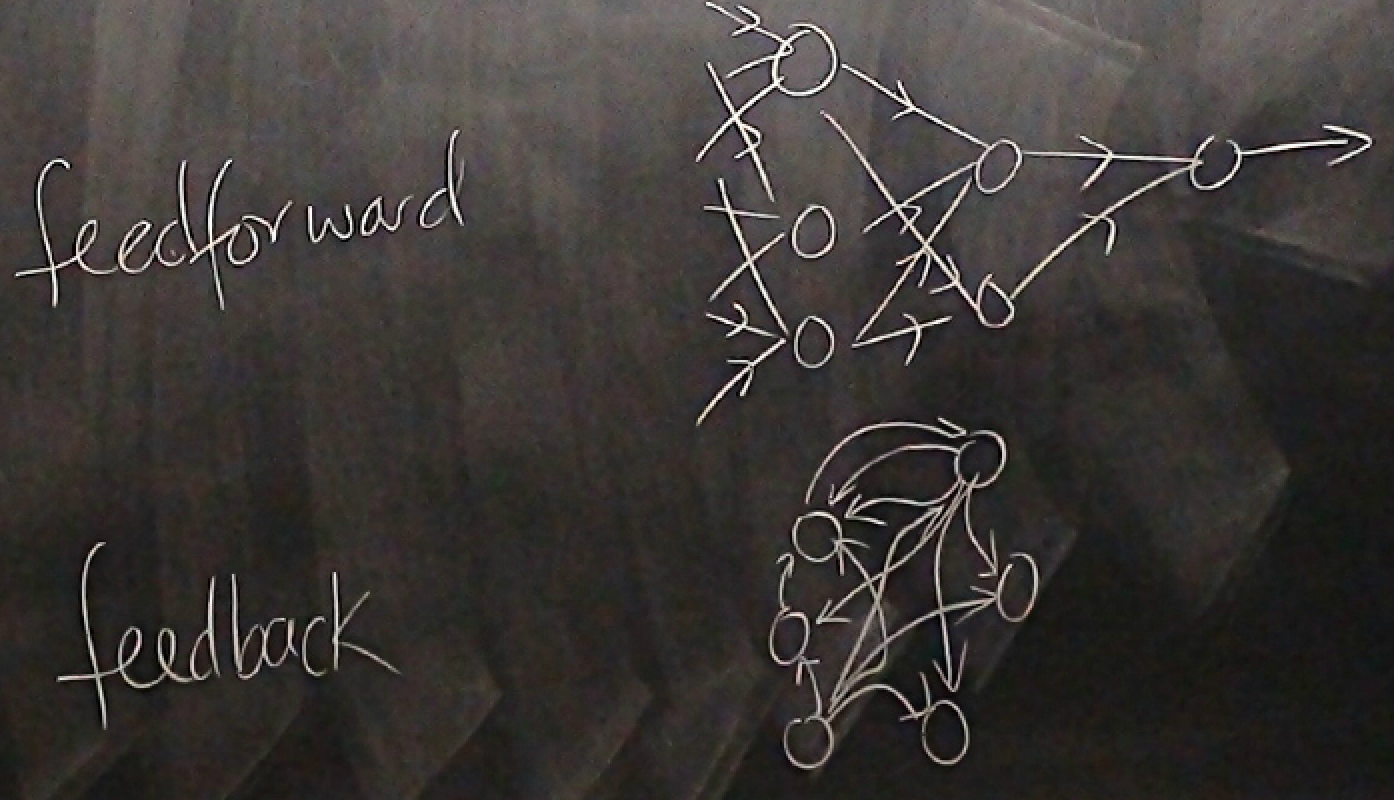 feedforward
feedback